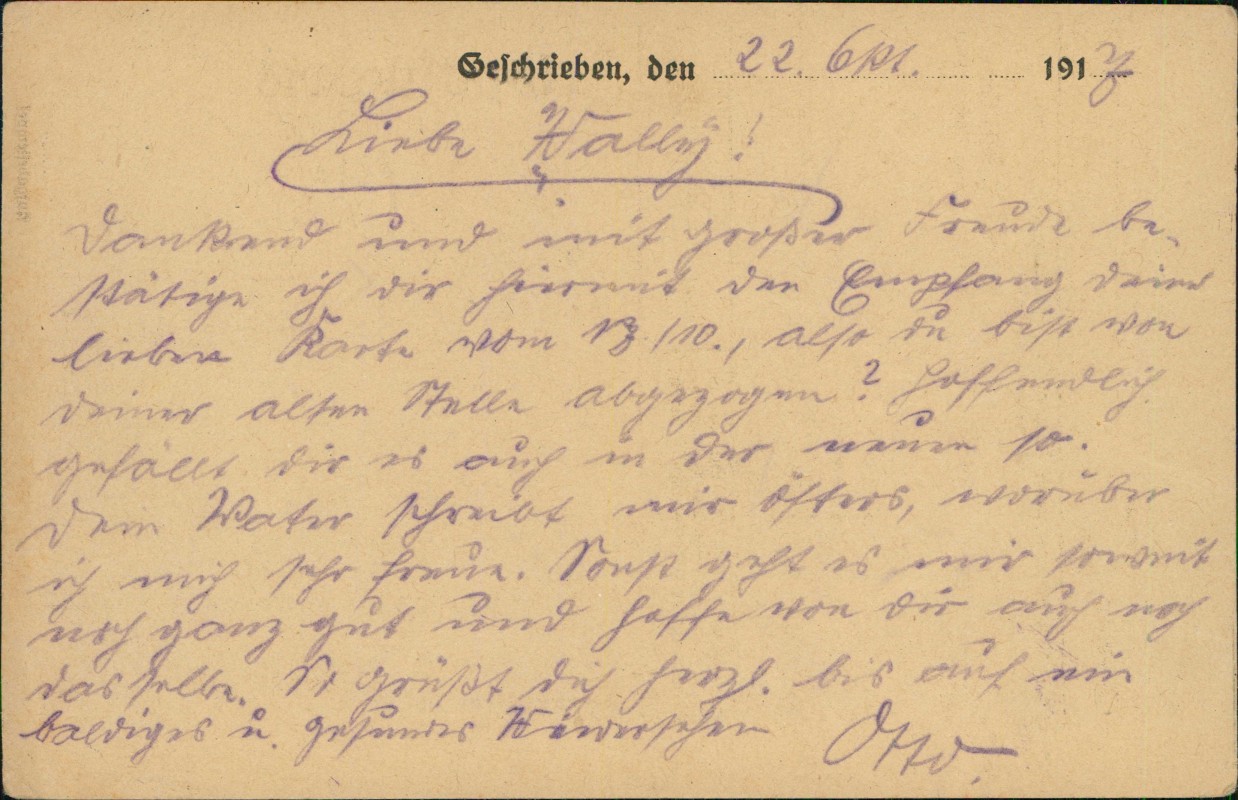 Geschrieben, den 22. Okt. 1917
Liebe Wally!
Dankend und mit großer Freude be-
stätige ich dir hiermit den Empfang deiner
lieben Karte vom /10., also du bist von
deiner alten Stelle abgezogen? Hoffendlich
gefällt dir es auch in der neuen so.
Dein Vater schreibt mir öfters, worüber
ich mich sehr freue. Sonst geht es mir soweit
noch ganz gut und hoffe von dir auch noch
dasselbe. So grüßt dich herzl. bis auf ein
baldiges u. gesundes Wiedersehen Otto.